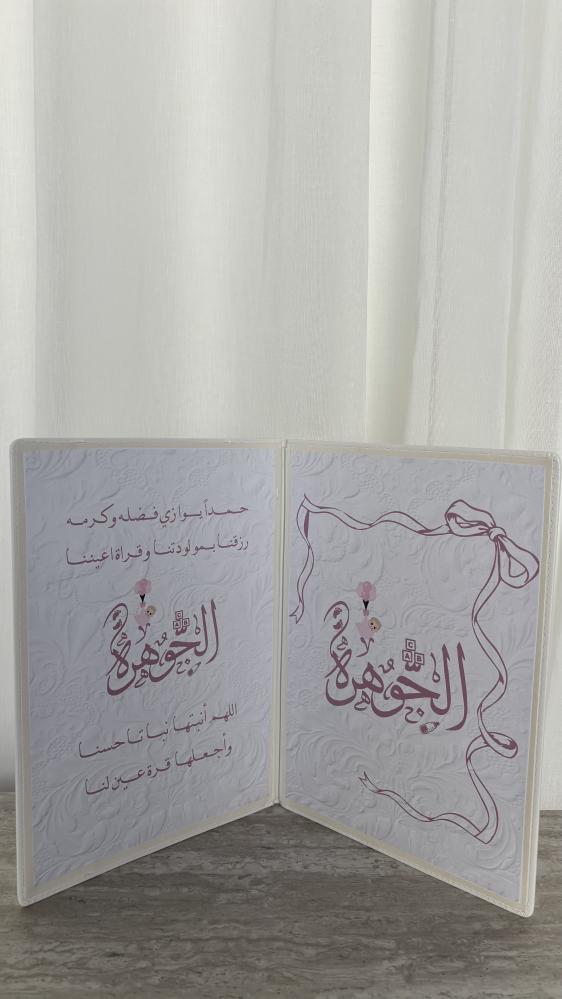 حمداً يوازي فضله وكرمه
رزقنا بمولودتنا وقراة اعيننا
الجوهرة
اللهم أنبتها نباتا حسنا
وأجعلها قرة عين لنا
الجوهرة